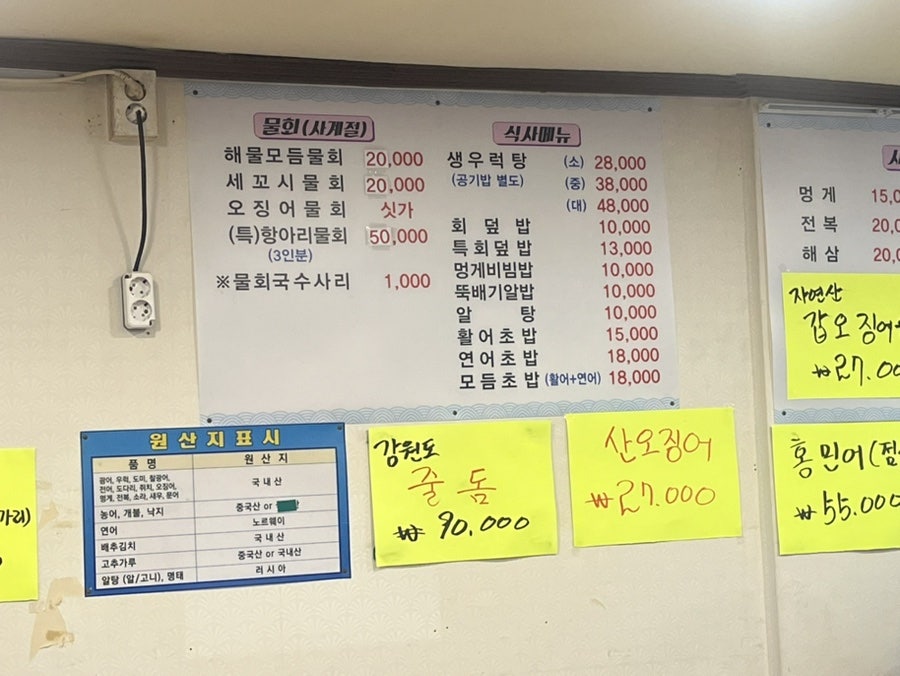 물회(사계절)
해물모듬물회 20,000
세꼬시물회 20,000
오징어물회 싯가
(특)항아리물회 50,000
(3인분)
※물회국수사리 1,000
식사메뉴
생우럭탕 (소) 28,000
(공기밥 별도) (중) 38,000
(대) 48,000
회덮밥 10,000
특회덮밥 13,000
멍게비빔밥 10,000
뚝배기알밥 10,000
알탕 10,000
활어초밥 15,000
연어초밥 18,000
모듬초밥 (활어+연어) 18,000
멍게 15,0
전복 20,0
해삼 20,0
자연산
갑오징어
₩27.00
홍민어(점
₩55.000
원산지표시
품명 원산지
광어, 우럭, 도미, 찰광어, 전어, 도다리, 쥐치, 오징어, 멍게, 전복, 소라, 새우, 문어 국내산
농어, 개불, 낙지 중국산 or
연어 노르웨이
배추김치 국내산
고추가루 중국산 or 국내산
알탕 (알/고니), 명태 러시아
강원도
줄돔
₩90,000
산오징어
₩27.000
가리)